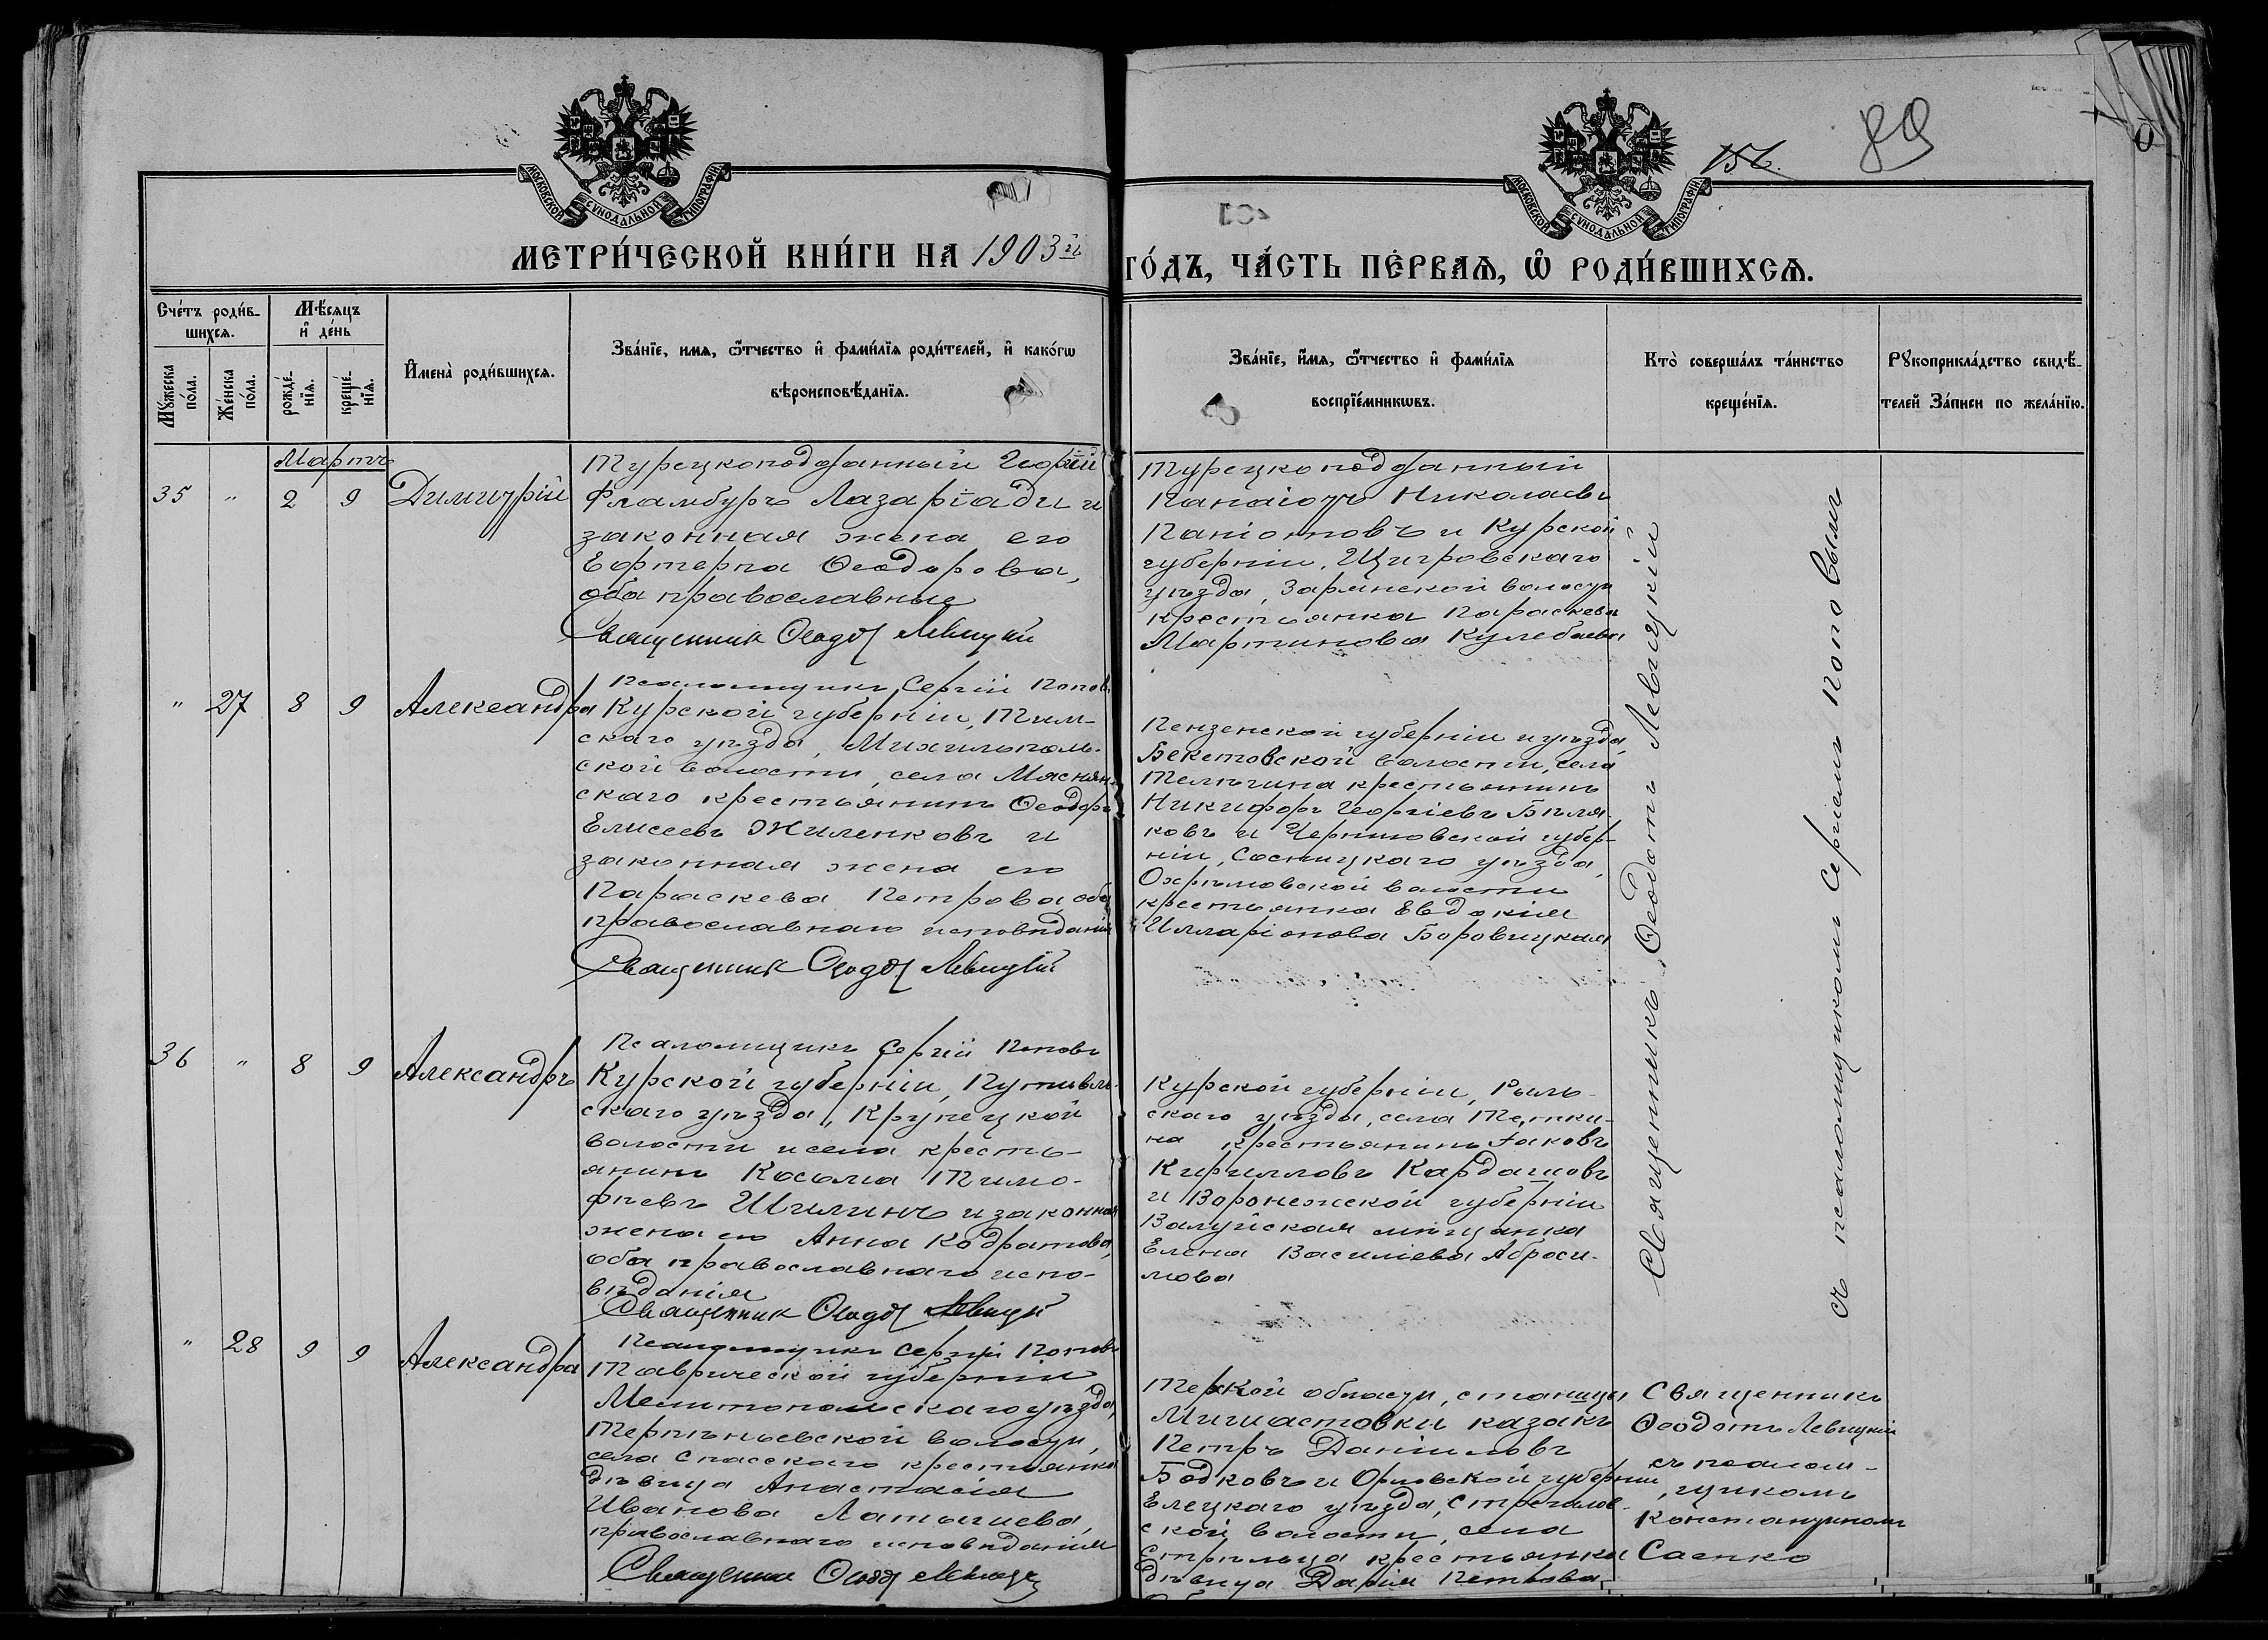 156.
89
МОСКОВСКОЙ СѴНОДАЛЬНОЙ ТИПОГРАФІИ
МОСКОВСКОЙ СѴНОДАЛЬНОЙ ТИПОГРАФІИ
МЕТРИ́ЧЕСКОЙ КНИ́ГИ НА 1903й ГО́ДЪ, ЧА́СТЬ ПЕ́РВАѦ, Ѡ҆ РОДИ́ВШИХСѦ.
Сче́тъ роди́в-
шихсѧ.
Мꙋ́жеска
по́ла.
Же́нска
по́ла.
Мѣ́сѧцъ
и҆ де́нь
рожде́-
нїѧ.
креще́-
нїѧ.
И҆мена̀ роди́вшихсѧ.
Зва́нїе, имѧ, ѿтчество и҆ фами́лїѧ роди́телей, и҆ како́гѡ
вѣроисповѣ́данїѧ.
Зва́нїе, и҆́мѧ, ѿтчество и҆ фами́лїѧ
воспрїе́мникѡвъ.
Кто̀ соверша́лъ та́инство
креще́нїѧ.
Рꙋкоприкла́дство свидѣ́-
телей За́писи по жела́нїю.
Мартъ
35 " 2 9 Димитрій
Турецкоподданный Георгій
Фламбуръ Лазаріади и
законная жена его
Евтерпа Ѳеодорова,
оба православные
Священник Ѳеодот Левицкій
Турецкоподданный
Панаіотъ Николаевъ
Паніотовъ и Курской
губерніи, Щигровскаго
уѣзда, волости
крестьянка Параскева
Мартинова Кулебаева
" 27 8 9 Александра
Псаломщикъ Сергій Поповъ
Курской губерніи, Тим-
скаго уѣзда, Михильполь-
ской волости, села Мяснян-
скаго крестьянинъ Ѳеодоръ
Елисеевъ Жиленковъ и
законная жена его
Параскева Петрова, оба
православнаго исповѣданія
Священник Ѳеодот Левицкій
Пензенской губерніи и уѣзда,
Бекетовской волости, села
крестьянинъ
Никифоръ Георгіевъ Бѣля
ковъ и Черниговской губер-
ніи, Сосницкаго уѣзда,
Охрѣмовской волости
крестьянка Евдокія
Илларіонова Боровицкая
36 " 8 9 Александръ
Псаломщикъ Сергій Поповъ
Курской губерніи, Путивль-
скаго уѣзда, Крупецкой
волости и села кресть-
янинъ Косьма Тимо-
фѣевъ Шилинъ и законная
жена его Анна Кодратова,
оба православнаго испо-
вѣданія
Священник Ѳеодот Левицкій
Курской губерніи, Рыль-
скаго уѣзда, села Теткі-
на крестьянинъ Іаковъ
Кирилловъ Кардашовъ
и Воронежской губерніи
Валуйская мѣщанка
Елена Василіева Аброси-
мова
Священникъ Ѳеодотъ Левицкій
съ псаломщикомъ Сергіемъ Поповымъ
" 28 9 9 Александра
Псаломщикъ Сергій Поповъ
Таврической губерніи
Мелитопольскаго уѣзда,
Терпѣньевской волости,
села Спасскаго крестьянка
дѣвица Анастасія
Иванова Латышева,
православнаго исповѣданія
Священник Ѳеодот Левицкій
Терской области, станицы
казакъ
Петръ Даніиловъ
Бодковъ и Орловской губерніи,
Елецкаго уѣзда,
ской волости, села
крестьянка
дѣвица Дарія Петрова
Священникъ
Ѳеодотъ Левицкій
съ псалом-
щикомъ
Константиномъ
Саенко